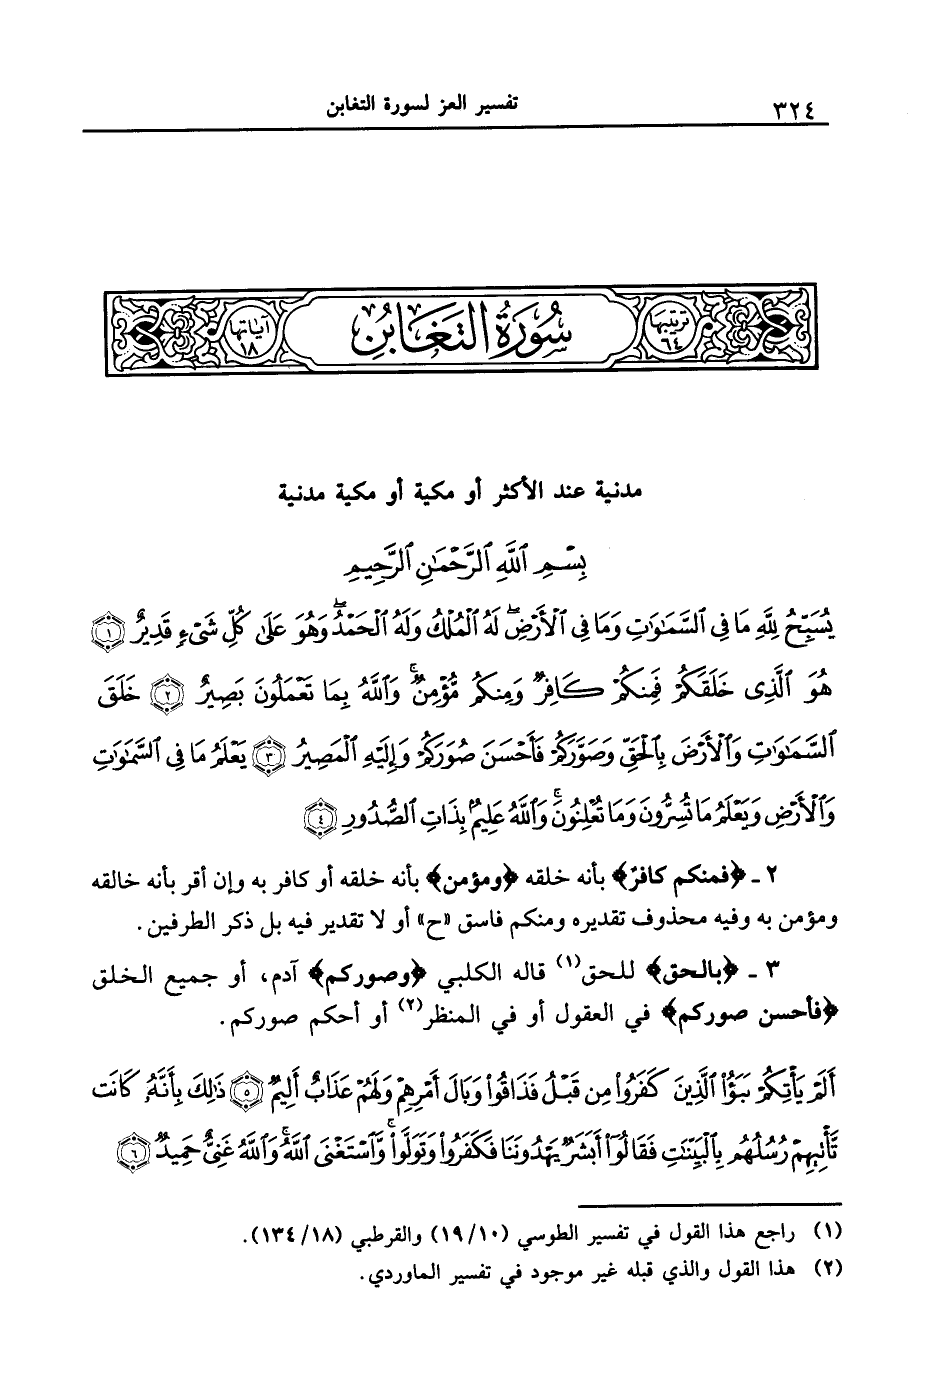 ٣٢٤ تفسير العز لسورة التغابن
ترتيبها ٦٤ سُورَةُ التَّغَابُنِ آياتها ١٨
مدنية عند الأكثر أو مكية أو مكية مدنية
بِسْمِ ٱللَّهِ ٱلرَّحْمَٰنِ ٱلرَّحِيمِ
يُسَبِّحُ لِلَّهِ مَا فِى ٱلسَّمَٰوَٰتِ وَمَا فِى ٱلْأَرْضِۖ لَهُ ٱلْمُلْكُ وَلَهُ ٱلْحَمْدُۖ وَهُوَ عَلَىٰ كُلِّ شَىْءٍ قَدِيرٌ ١
هُوَ ٱلَّذِى خَلَقَكُمْ فَمِنكُمْ كَافِرٌ وَمِنكُم مُّؤْمِنٌۚ وَٱللَّهُ بِمَا تَعْمَلُونَ بَصِيرٌ ٢ خَلَقَ
ٱلسَّمَٰوَٰتِ وَٱلْأَرْضَ بِٱلْحَقِّ وَصَوَّرَكُمْ فَأَحْسَنَ صُوَرَكُمْ وَإِلَيْهِ ٱلْمَصِيرُ ٣ يَعْلَمُ مَا فِى ٱلسَّمَٰوَٰتِ
وَٱلْأَرْضِ وَيَعْلَمُ مَا تُسِرُّونَ وَمَا تُعْلِنُونَۚ وَٱللَّهُ عَلِيمٌۢ بِذَاتِ ٱلصُّدُورِ ٤
٢ ـ ﴿فمنكم كافرٌ﴾ بأنه خلقه ﴿ومؤمن﴾ بأنه خلقه أو كافر به وإن أقر بأنه خالقه
ومؤمن به وفيه محذوف تقديره ومنكم فاسق «ح» أو لا تقدير فيه بل ذكر الطرفين.
٣ ـ ﴿بالحق﴾ للحق(١) قاله الكلبي ﴿وصوركم﴾ آدم، أو جميع الخلق
﴿فأحسن صوركم﴾ في العقول أو في المنظر(٢) أو أحكم صوركم.
أَلَمْ يَأْتِكُمْ نَبَؤُا۟ ٱلَّذِينَ كَفَرُوا۟ مِن قَبْلُ فَذَاقُوا۟ وَبَالَ أَمْرِهِمْ وَلَهُمْ عَذَابٌ أَلِيمٌ ٥ ذَٰلِكَ بِأَنَّهُۥ كَانَت
تَّأْتِيهِمْ رُسُلُهُم بِٱلْبَيِّنَٰتِ فَقَالُوٓا۟ أَبَشَرٌ يَهْدُونَنَا فَكَفَرُوا۟ وَتَوَلَّوا۟ۚ وَّٱسْتَغْنَى ٱللَّهُۚ وَٱللَّهُ غَنِىٌّ حَمِيدٌ ٦
(١) راجع هذا القول في تفسير الطوسي (١٩/١٠) والقرطبي (١٣٤/١٨).
(٢) هذا القول والذي قبله غير موجود في تفسير الماوردي.